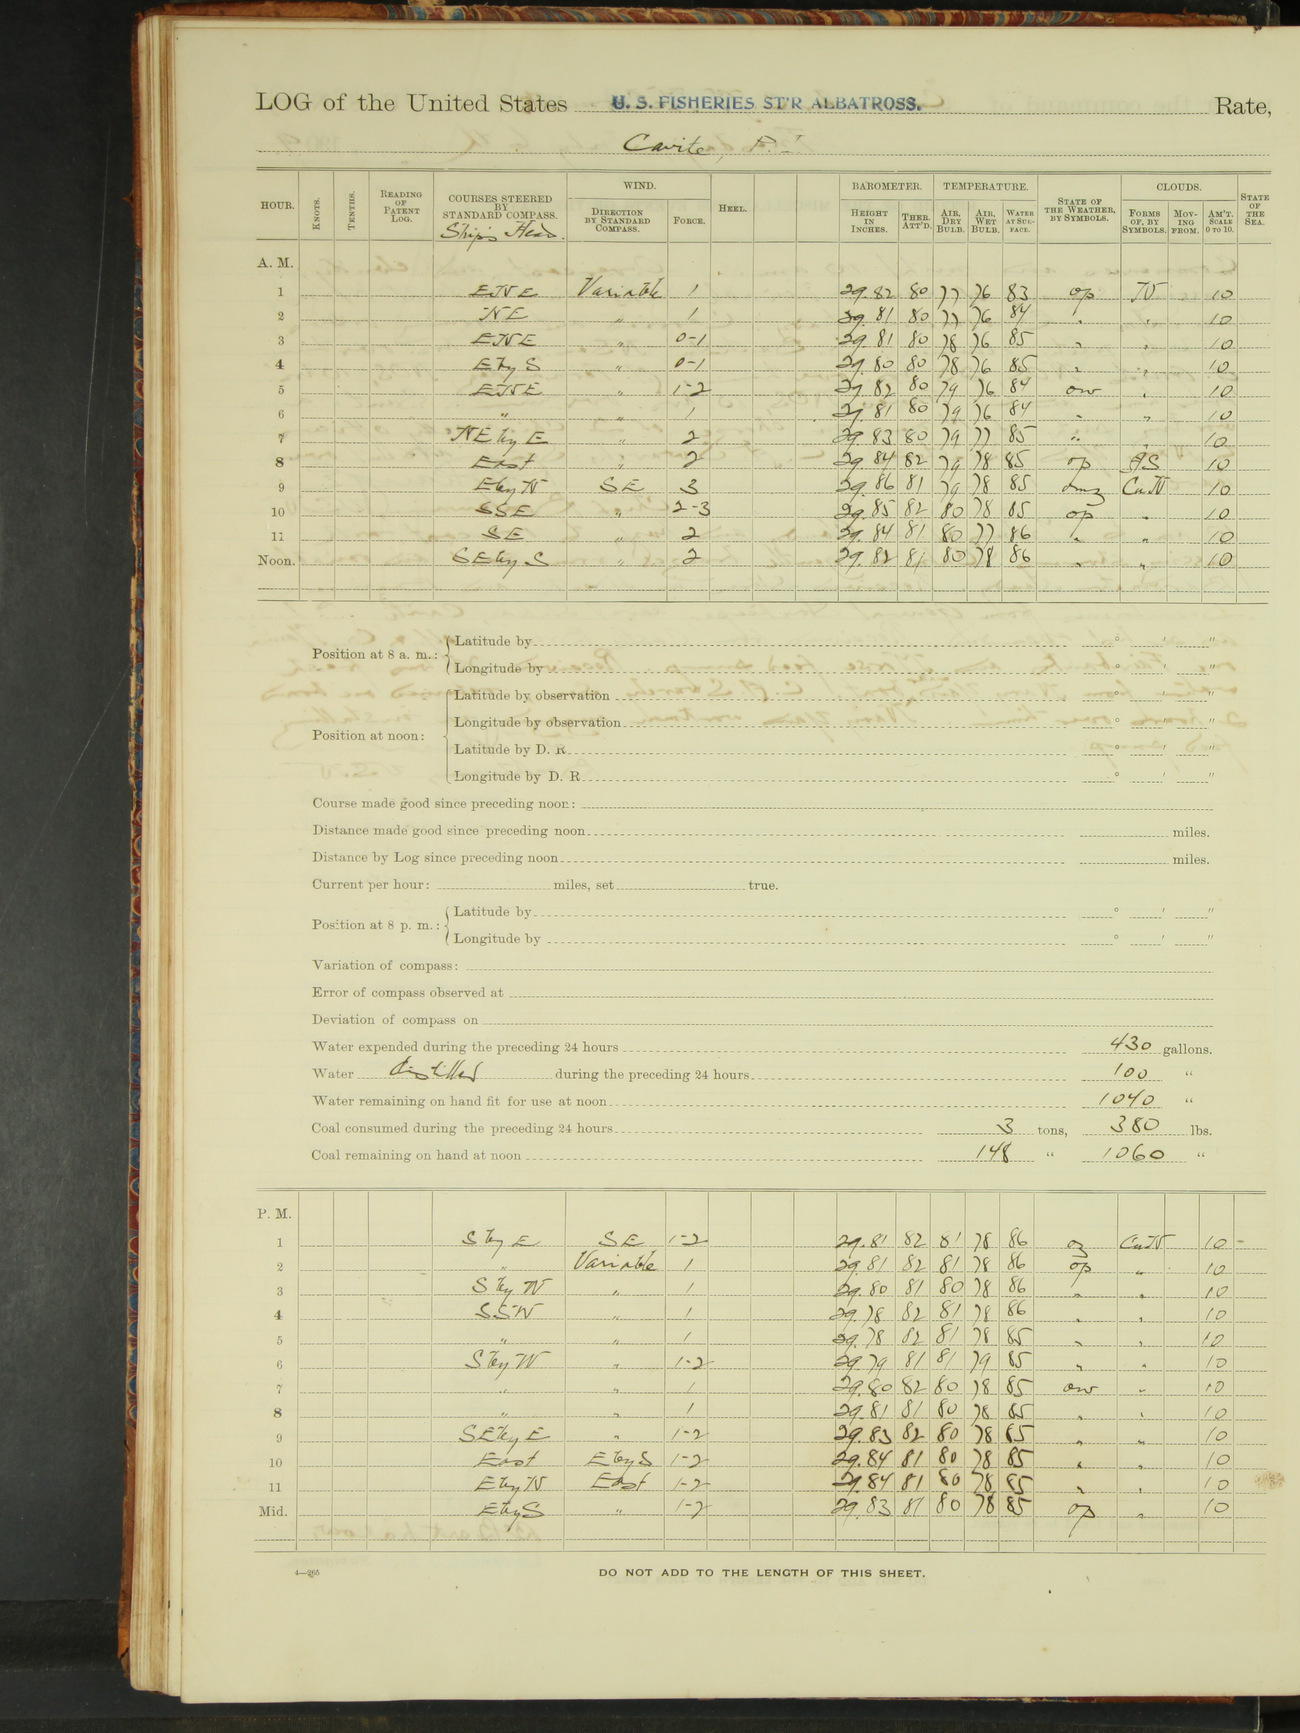 LOG of the United States U. S. FISHERIES ST'R ALBATROSS. Rate,
Cavite, P. I.
HOUR. KNOTS. TENTHS. READING OF PATENT LOG. COURSES STEERED BY STANDARD COMPASS. Ship's Head. WIND. DIRECTION BY STANDARD COMPASS. FORCE. HEEL. BAROMETER. HEIGHT IN INCHES. THER. ATT'D. TEMPERATURE. AIR, DRY BULB. AIR, WET BULB. WATER AT SURFACE. STATE OF THE WEATHER, BY SYMBOLS. CLOUDS. FORMS OF, BY SYMBOLS. MOVING FROM. AM'T. SCALE 0 TO 10. STATE OF THE SEA.
A. M.
1 ENE Variable 1 29.82 80 77 76 83 op N 10
2 NE " 1 29.81 80 77 76 84 " " 10
3 ENE " 0-1 29.81 80 78 76 85 " " 10
4 E by S " 0-1 29.80 80 78 76 85 " " 10
5 ENE " 1-2 29.82 80 79 76 84 ow " 10
6 " " 1 29.81 80 79 76 84 " " 10
7 NE by E " 2 29.83 80 79 77 85 " " 10
8 East " 2 29.84 82 79 78 85 op 10
9 E by N SE 3 29.86 81 79 78 85 Cu.N 10
10 SSE " 2-3 29.85 82 80 78 85 op " 10
11 SE " 2 29.84 81 80 77 86 " " 10
Noon. SE by S " 2 29.82 81 80 78 86 " " 10
Position at 8 a. m.: Latitude by ° ' "
Longitude by ° ' "
Position at noon: Latitude by observation ° ' "
Longitude by observation ° ' "
Latitude by D. R. ° ' "
Longitude by D. R. ° ' "
Course made good since preceding noon:
Distance made good since preceding noon miles.
Distance by Log since preceding noon miles.
Current per hour: miles, set true.
Position at 8 p. m.: Latitude by ° ' "
Longitude by ° ' "
Variation of compass:
Error of compass observed at
Deviation of compass on
Water expended during the preceding 24 hours 430 gallons.
Water distilled during the preceding 24 hours 100 "
Water remaining on hand fit for use at noon 1040 "
Coal consumed during the preceding 24 hours 3 tons, 380 lbs.
Coal remaining on hand at noon 148 " 1060 "
P. M.
1 S by E SE 1-2 29.81 82 81 78 86 Cu.N 10
2 " Variable 1 29.81 82 81 78 86 op " 10
3 S by W " 1 29.80 81 80 78 86 " " 10
4 SSW " 1 29.78 82 81 78 86 " " 10
5 " " 1 29.78 82 81 78 85 " " 10
6 S by W " 1-2 29.79 81 81 79 85 " " 10
7 " " 1 29.80 82 80 78 85 ow " 10
8 " " 1 29.81 81 80 78 85 " " 10
9 SE by E " 1-2 29.83 82 80 78 85 " " 10
10 East E by S 1-2 29.84 81 80 78 85 " " 10
11 E by N East 1-2 29.84 81 80 78 85 " " 10
Mid. E by S " 1-2 29.83 81 80 78 85 op " 10
4—265
DO NOT ADD TO THE LENGTH OF THIS SHEET.